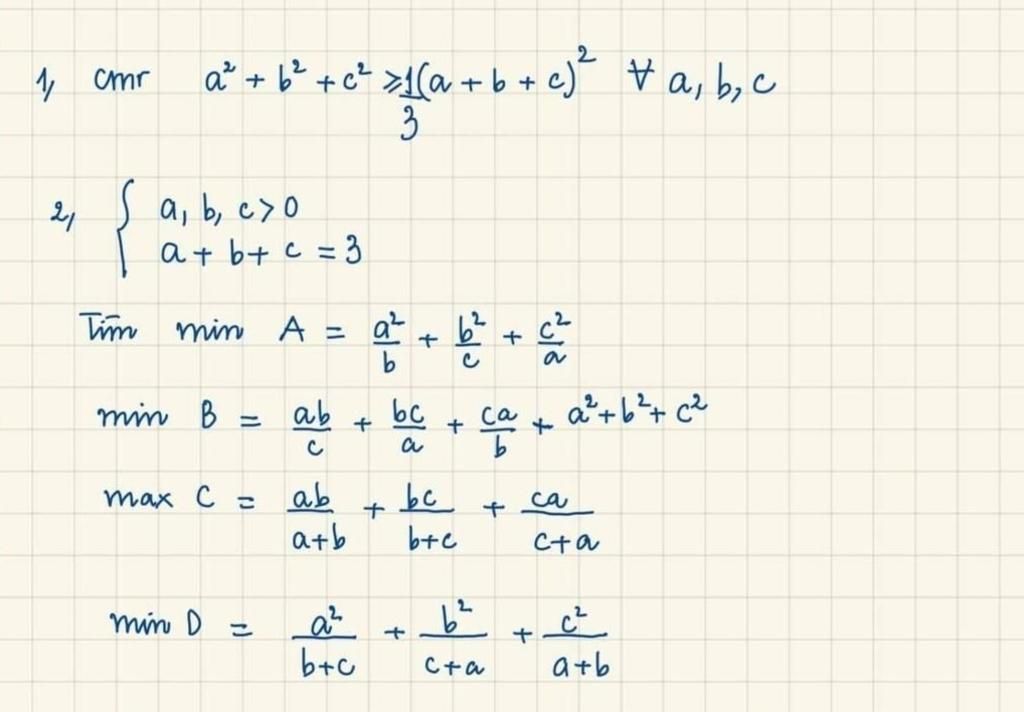 1, cmr a² + b² + c² ≥ 1/3 (a + b + c)² ∀ a, b, c
2, { a, b, c > 0
a + b + c = 3
Tìm min A = a²/b + b²/c + c²/a
min B = ab/c + bc/a + ca/b + a² + b² + c²
max C = ab/(a+b) + bc/(b+c) + ca/(c+a)
min D = a²/(b+c) + b²/(c+a) + c²/(a+b)